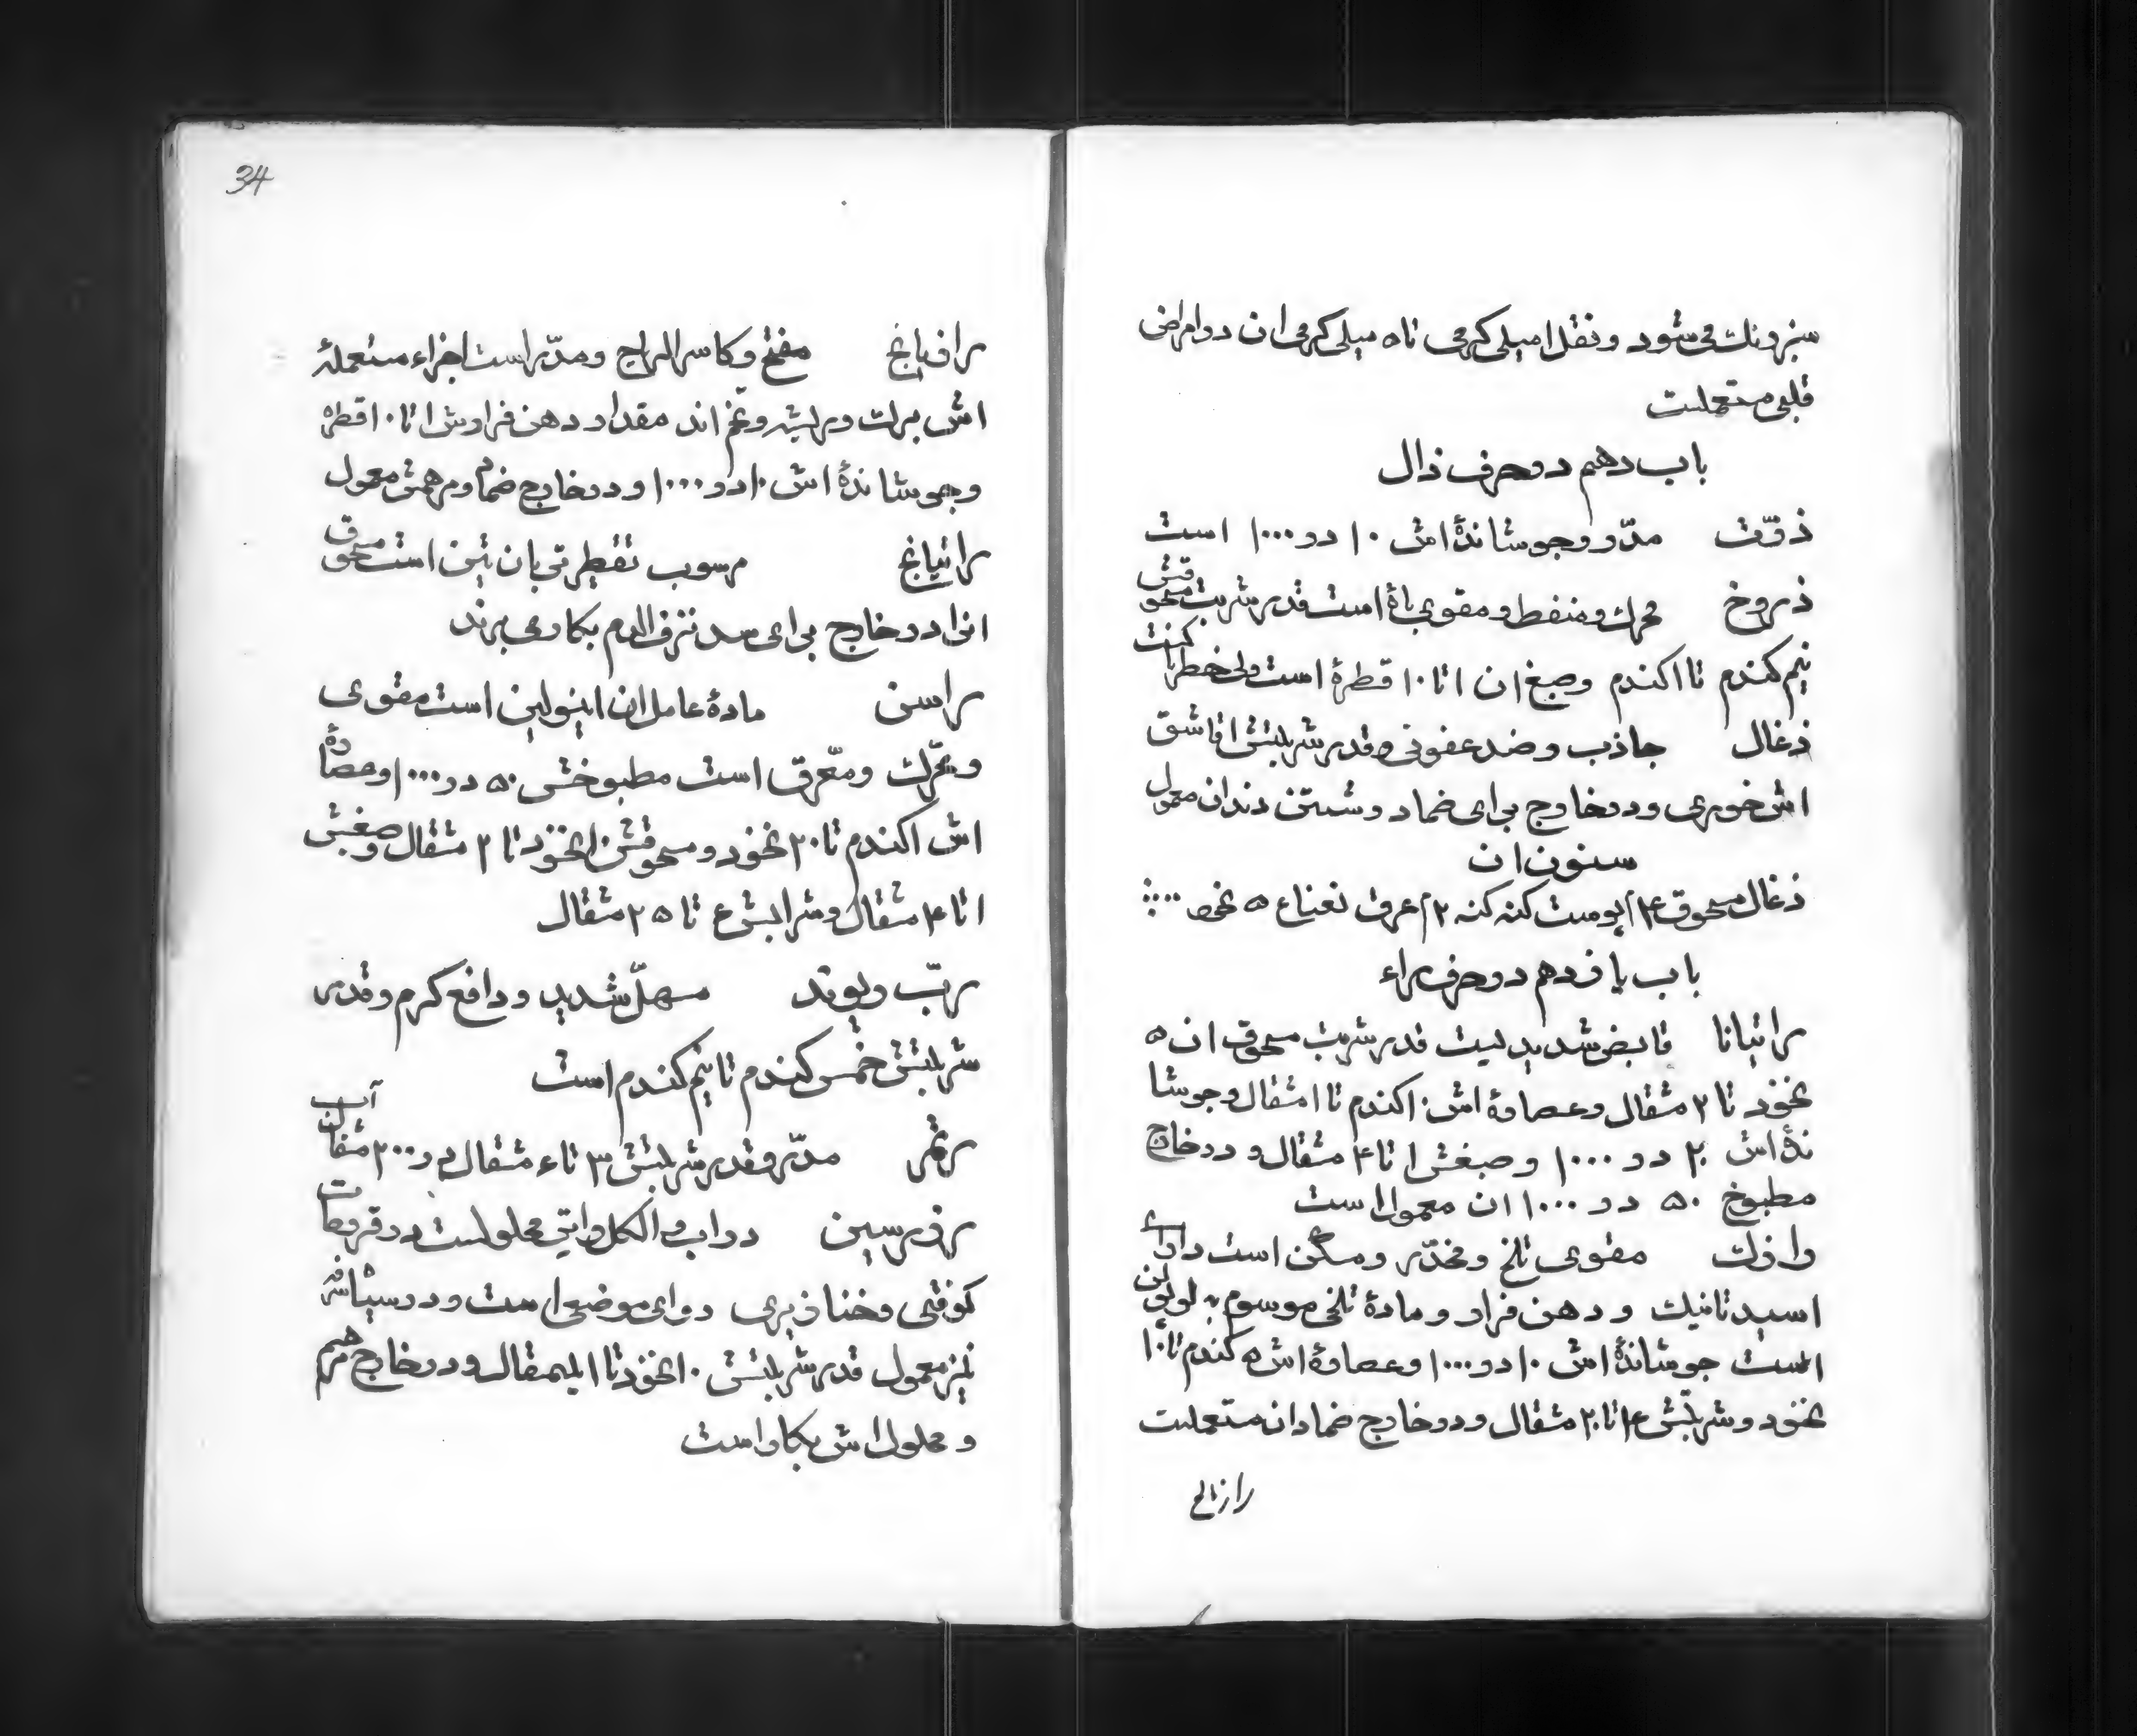 سبز رنك می شود و نقل ا میلی كرمی تا ه میلی كرمی ان در امراض
قلبی مستعملست
باب دهم در حرف ذال
ذرّت مدّر و جوشاندۀ اش ۱۰ در ۱۰۰۰ است
ذروخ محرك و منفط و مقوی باۀ است قدر شربت مسحوقش
نیم كندم تا ا كندم و صبغ ان ا تا ۱۰ قطرۀ است ولی خطرناكست
ذغال جاذب و ضد عفونی و قدر شربتش ا قاشق
اش خوری و در خارج برای ضماد و شستن دندان معمول
سنون ان
ذغال مسحوق ۱۴ پوست كنه كنه ۱۲ عرق نعناع ه نخود
باب یازدهم در حرف راء
راتیانا قابض شدیدیست قدر شربت مسحوق ان ه
نخود تا ۲ مثقال و عصارۀ اش ا كندم تا ا مثقال و جوشا
ندۀ اش ۲۰ در ۱۰۰۰ و صبغش ا تا ۴ مثقال و در خارج
مطبوخ ۵۰ در ۱۰۰۰ ان معمول است
رازك مقوی تلخ و مخدّر و مسكن است دارای
اسید تانیك و دهن فرار و مادۀ تلخی موسوم به لوپولین
است جوشاندۀ اش ۱۰ در ۱۰۰۰ و عصارۀ اش ه كندم تا ۱۰
نخود و شربتش ۱۴ تا ۲۰ مثقال و در خارج ضماد ان مستعملست
رازیانج
34
رازیانج مفتح و كاسر الریاح و مدّر است اجزاء مستعملۀ
اش برك و ریشه و تخم اند مقدار دهن فرارش ا تا ۱۰ قطره
و جوشاندۀ اش ۱۰ در ۱۰۰۰ و در خارج ضماد و مرهمش معمول
راتیانج رسوب تقطیر تربانتین است مسحوق
انرا در خارج برای سد نزف الدم بكار می برند
راسن مادۀ عامل ان اینولین است مقوی
و محّرك و معّرق است مطبوخش ۵۰ در ۱۰۰۰ و عصارۀ
اش ا كندم تا ۲۰ نخود و مسحوقش ۱۰ نخود تا ۲ مثقال و صبغش
ا تا ۴ مثقال و شرابش ۴ تا ۲۵ مثقال
ربّ ریوند مسهلّ شدید و دافع كرم و قدر
شربتش خمس كندم تا نیم كندم است
رتم مدّر و قدر شربتش ۳ تا ۴ مثقال در ۲۰۰ مثقال آب
رزرسین در اب و الكل و اتر محلولست در قروحات
كوفتی و خنازیری دوای موضعی است و در سیتافر
نیز معمول قدر شربتش ۱۰ نخود تا ا نیمثقال و در خارج مرهم
و محلول اش بكار است